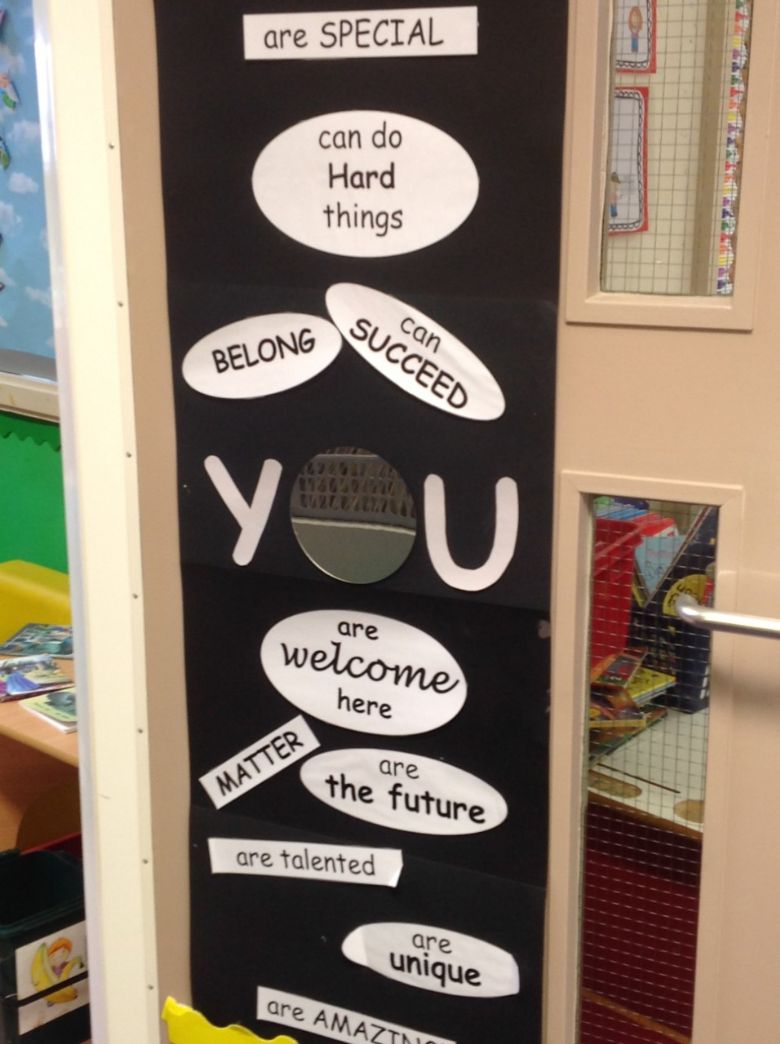 are SPECIAL
can do
Hard
things
BELONG
can
SUCCEED
YOU
are
welcome
here
MATTER
are
the future
are talented
are
unique
are AMAZING